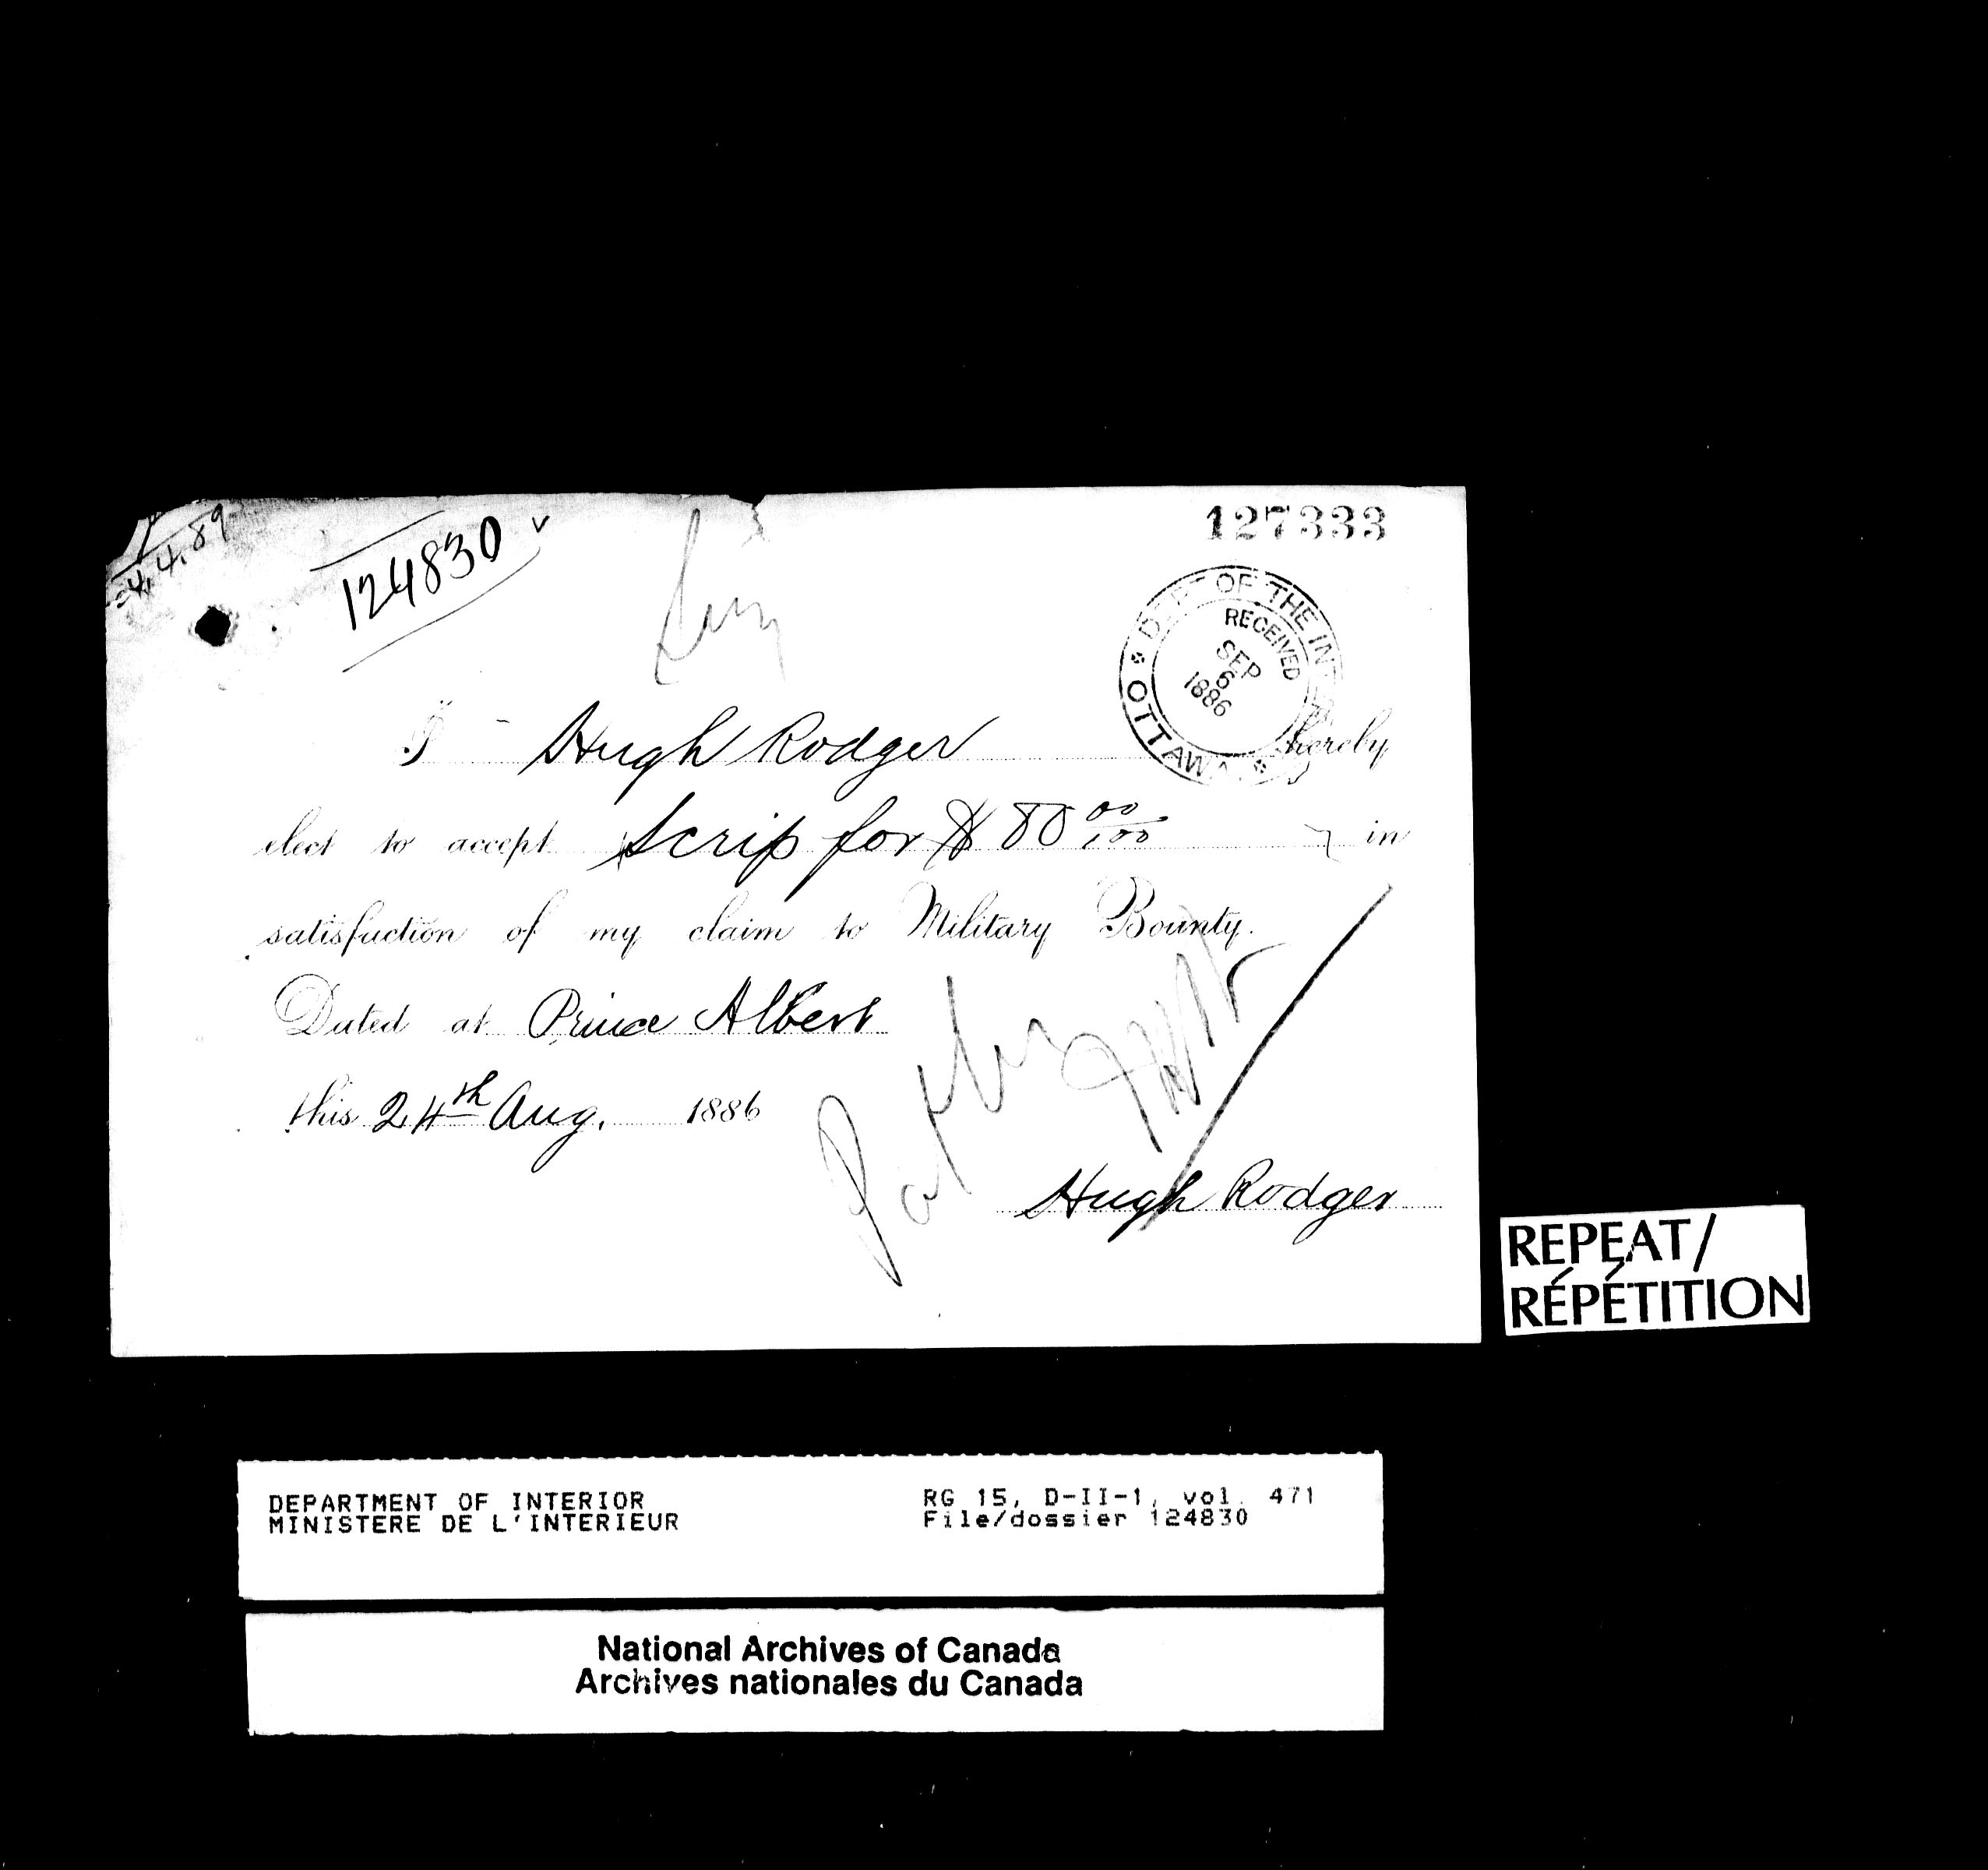 4.4.89
124830
127333
DEPT OF THE INT
RECEIVED
SEP
6
1886
OTTAWA
I Hugh Rodger hereby
elect to accept Scrip for $80 00/100 in
satisfaction of my claim to Military Bounty.
Dated at Prince Albert
this 24th Aug. 1886
Hugh Rodger
REPEAT/
RÉPÉTITION
DEPARTMENT OF INTERIOR RG 15, D-II-1, vol. 471
MINISTERE DE L'INTERIEUR File/dossier 124830
National Archives of Canada
Archives nationales du Canada